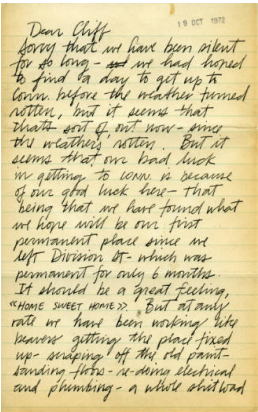 19 OCT 1972
Dear Cliff
Sorry that we have been silent
for so long - we had hoped
to find a day to get up to
Conn. before the weather turned
rotten, but it seems that
thats sort of out now - since
the weathers rotten. But it
seems that our bad luck
in getting to conn. is because
of our good luck here - that
being that we have found what
we hope will be our first
permanent place since we
left Division St - which was
permanent for only 6 months.
It should be a great feeling,
"HOME SWEET HOME". But at any
rate we have been working like
beavers getting the place fixed
up - scraping off the old paint -
sanding floors - re-doing electrical
and plumbing - a whole shitload